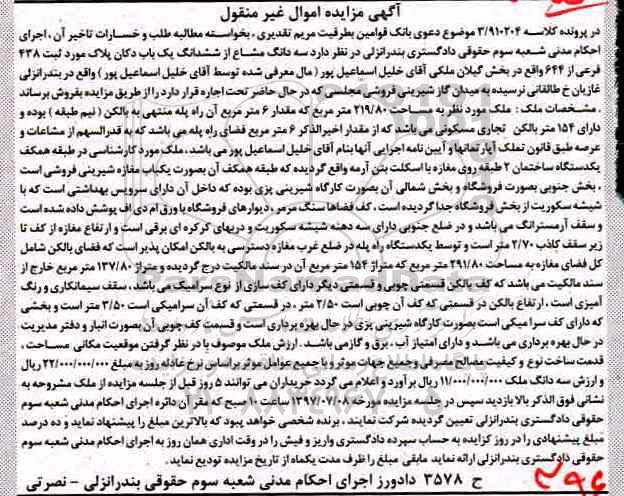 آگهی مزایده اموال غیر منقول
در پرونده کلاسه ۳/۹۱۰۲۰۴ موضوع دعوی بانک قوامین بطرفیت مریم تقدیری ، بخواسته مطالبه طلب و خسارات تاخیر آن ، اجرای
احکام مدنی شعبه سوم حقوقی دادگستری بندرانزلی در نظر دارد سه دانگ مشاع از ششدانگ یک باب دکان پلاک مورد ثبت ۴۳۸
فرعی از ۶۴۴ واقع در بخش گیلان ملکی آقای خلیل اسماعیل پور ( مال معرفی شده توسط آقای خلیل اسماعیل پور ) واقع در بندرانزلی
غازیان خ طالقانی نرسیده به میدان گاز شیرینی فروشی مجلسی که در حال حاضر تحت اجاره قرار دارد را از طریق مزایده بفروش برساند
. مشخصات ملک : ملک مورد نظر به مساحت ۲۱۹/۸۰ متر مربع که مقدار ۶ متر مربع آن راه پله منتهی به بالکن ( نیم طبقه ) بوده و
دارای ۱۵۴ متر بالکن تجاری مسکونی می باشد که از مقدار اخیرالذکر ۶ متر مربع فضای راه پله می باشد که به قدرالسهم از مشاعات و
عرصه طبق قانون تملک آپارتمانها و آیین نامه اجرایی آنها بنام آقای خلیل اسماعیل پور می باشد ، ملک مورد کارشناسی در طبقه همکف
یکدستگاه ساختمان ۲ طبقه روی مغازه با اسکلت بتن آرمه واقع گردیده که طبقه همکف آن بصورت یکباب مغازه شیرینی فروشی است
، بخش جنوبی بصورت فروشگاه و بخش شمالی آن بصورت کارگاه شیرینی پزی بوده که داخل آن دارای سرویس بهداشتی است که با
شیشه سکوریت از بخش فروشگاه جدا گردیده است ، کف فضاها سنگ مرمر ، دیوارهای فروشگاه با ورق ام دی اف پوشش داده شده است
و سقف آرمسترانگ می باشد و در ضلع جنوبی دارای سه دهنه شیشه سکوریت و دربهای کرکره ای برقی است و ارتفاع مغازه از کف تا
زیر سقف کاذب ۲/۷۰ متر است و توسط یکدستگاه راه پله در ضلع غرب مغازه دسترسی به بالکن امکان پذیر است که فضای بالکن شامل
کل فضای مغازه به مساحت ۲۹۱/۸۰ متر مربع که متراژ ۱۵۴ متر مربع آن در سند مالکیت درج گردیده و متراژ ۱۳۷/۸۰ متر مربع خارج از
سند مالکیت می باشد که کف بالکن قسمتی چوبی و قسمتی دیگر دارای کف سازی از نوع سرامیک می باشد ، سقف سیمانکاری و رنگ
آمیزی است ، ارتفاع بالکن در قسمتی که کف آن چوبی است ۲/۵۰ متر ، در قسمتی که کف آن سرامیکی است ۳/۵۰ متر است و بخشی
که دارای کف سرامیکی است بصورت کارگاه شیرینی پزی در حال بهره برداری است و قسمت کف چوبی آن بصورت انبار و دفتر مدیریت
در حال بهره برداری می باشد و دارای امتیاز آب ، برق و گازمی باشد . ارزش ملک موصوف با در نظر گرفتن موقعیت مکانی ، مساحت ،
قدمت ساخت نوع و کیفیت مصالح مصرفی و جمیع جهات موثر و با جمیع عوامل موثر براساس نرخ عادله روز به مبلغ ۲۲/۰۰۰/۰۰۰/۰۰۰ ریال
و ارزش سه دانگ ملک ۱۱/۰۰۰/۰۰۰/۰۰۰ ریال برآورد و اعلام می گردد خریداران می توانند ۵ روز قبل از جلسه مزایده از ملک مشروحه به
نشانی فوق الذکر بالا بازدید سپس در جلسه مزایده مورخه ۱۳۹۷/۰۷/۰۸ ساعت ۱۰ صبح که مقر آن دائره اجرای احکام مدنی شعبه سوم
حقوقی دادگستری بندرانزلی تعیین گردیده شرکت نمایند ، برنده شخصی خواهد بود که بالاترین مبلغ را پیشنهاد نماید و ده درصد
مبلغ پیشنهادی را در روز کزایده به حساب سپرده دادگستری واریز و فیش را در وقت اداری همان روز به اجرای احکام مدنی شعبه سوم
حقوقی دادگستری بندرانزلی ارائه نماید مابقی مبلغ را ظرف مدت یکماه از تاریخ مزایده تودیع نماید .
ح ۳۵۷۸ دادورز اجرای احکام مدنی شعبه سوم حقوقی بندرانزلی - نصرتی